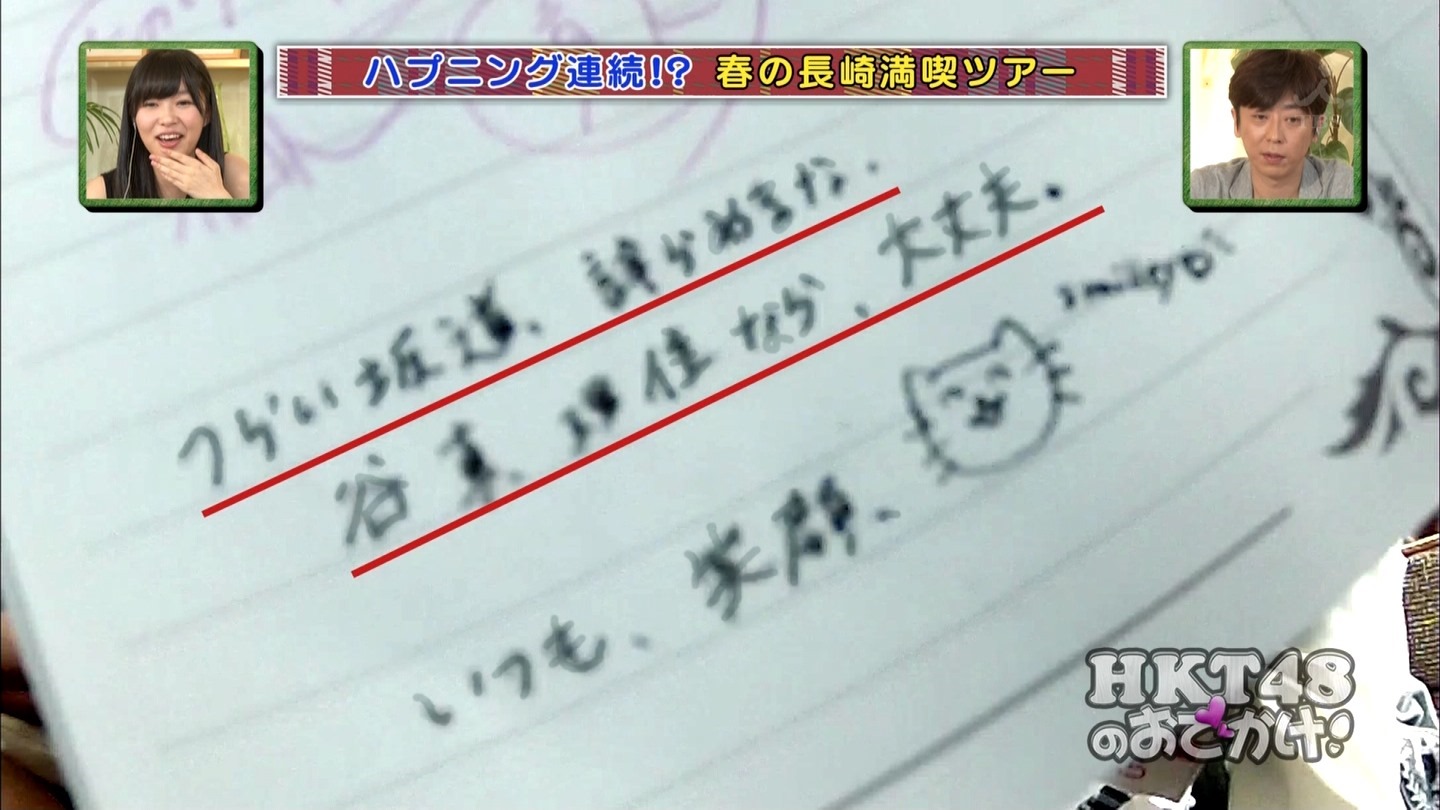 ハプニング連続!? 春の長崎満喫ツアー
つらい坂道、諦らめるな.
谷真理佳なら、大丈夫.
smilgo!
いつも、笑顔、
HKT48
のおでかけ!